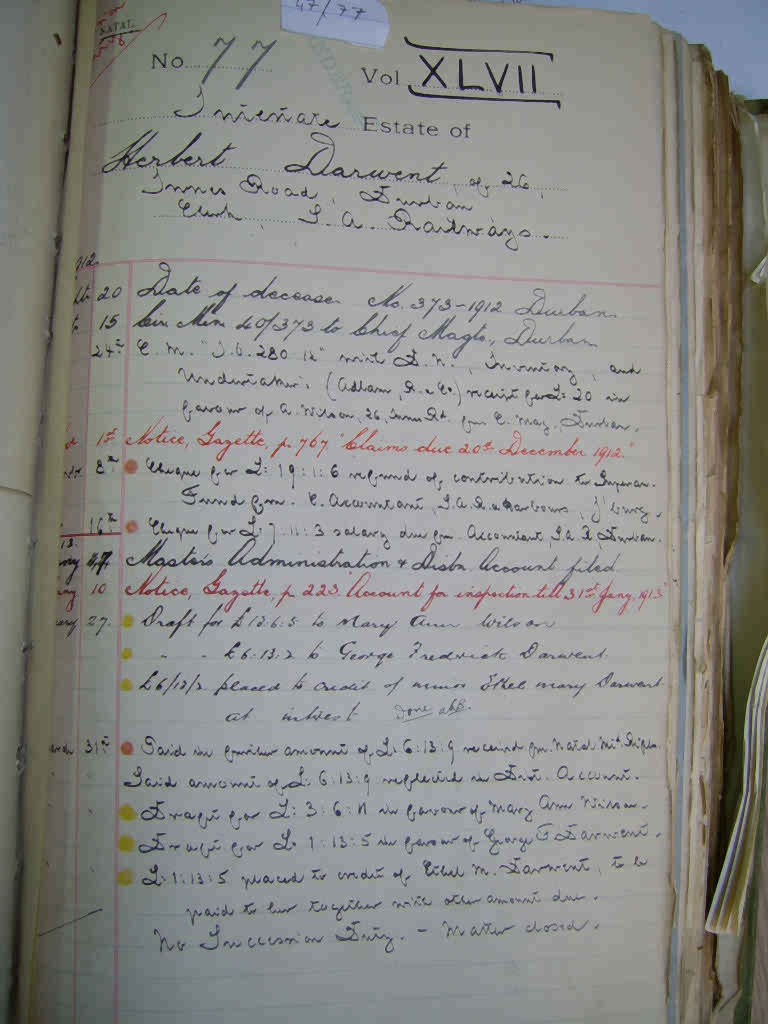 47/77
NATAL.
No 77 Vol XLVII
Intestate Estate of
Herbert Darwent, of 26,
Innes Road, Durban
Clerk, S. A. Railways.
1912
20 Date of decease. No. 373-1912 Durban.
15 Cir. Min 40/373 to Chief Magte, Durban
24th C. M. "J.C. 280 12" with D.N., Inventory, and
Undertaker's (Adlam, R. & Co.) receipt for £: 20 in
favour of A. Wilson, 26, Innes Rd. fm C. Mag. Durban.
1st Notice, Gazette, p. 767 "Claims due 20th December 1912."
8th Cheque for £: 19:1:6 refund of contribution to Superan.
Fund fm. C. Accountant, S.A.R. & Harbours, J'burg.
16th Cheque for £: 7:11:3 salary due fm Accountant, S.A.R. Durban.
7. Master's Administration & Distbn Account filed
10 Notice, Gazette, p 223. Account for inspection till 31st Jany. 1913."
27. Draft for £13:6:5 to Mary Ann Wilson
" " £6:13:2 to George Fredrick Darwent.
£6/13/2 placed to credit of minor Ethel Mary Darwent
at interest Done
31st Paid in further amount of £: 6:13:9 received fm. Natal Mtd. Rifles.
Said amount of £: 6:13:9 reflected in Dist. Account.
Draft for £: 3:6:11 in favour of Mary Ann Wilson.
Draft for £: 1:13:5 in favour of George F Darwent.
£: 1:13:5 placed to credit of Ethel M. Darwent, to be
paid to her together with other amount due.
No Succession Duty. - Matter closed.